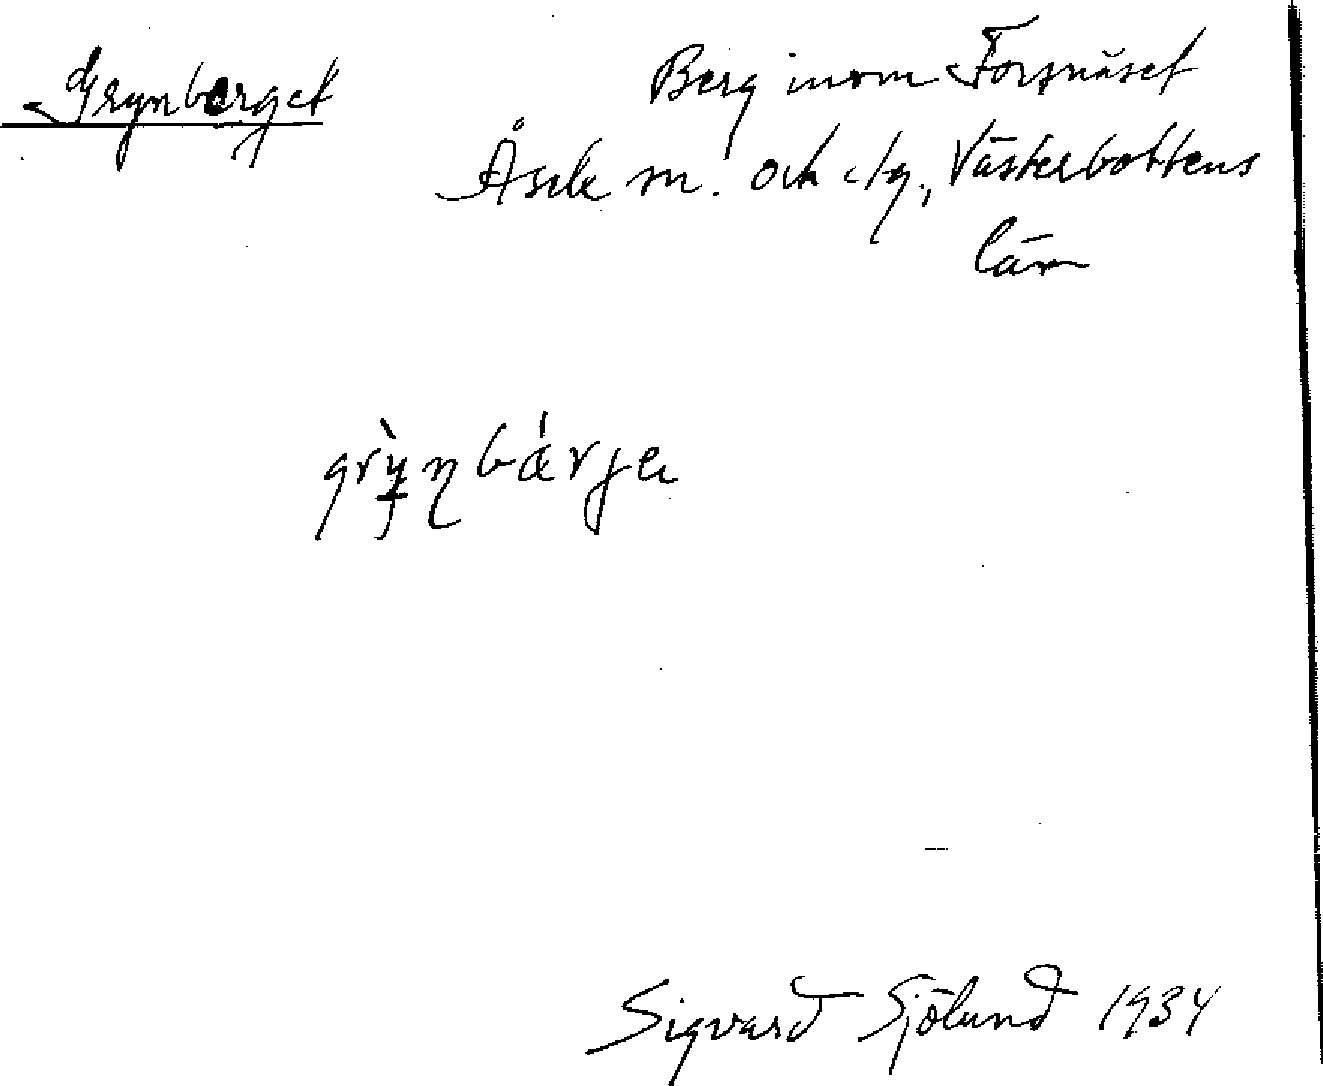 Grynberget
Berg inom Forsnäset
Åsele sn. och tg., Västerbottens
län
grỳnbǽrjeꞏ
Sigvard Sjölund 1934